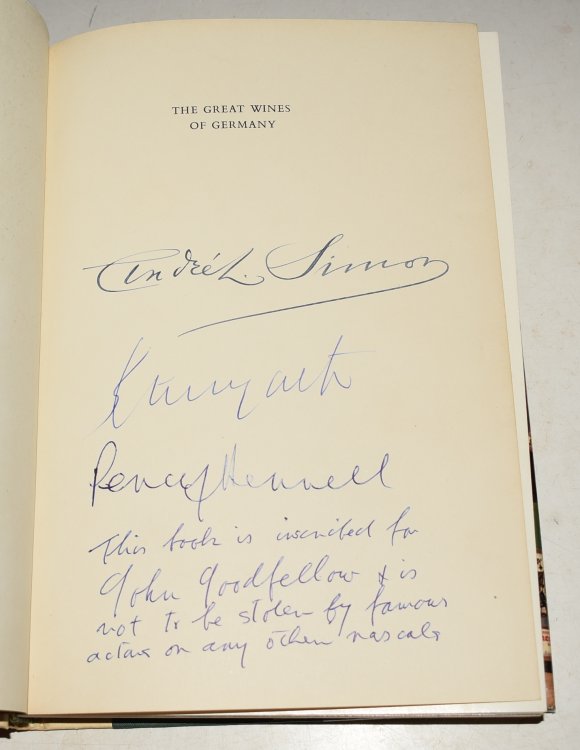 THE GREAT WINES
OF GERMANY
André L. Simon
Percy Hennell
This book is inscribed for
John Goodfellow & is
not to be stolen by famous
actors or any other rascals